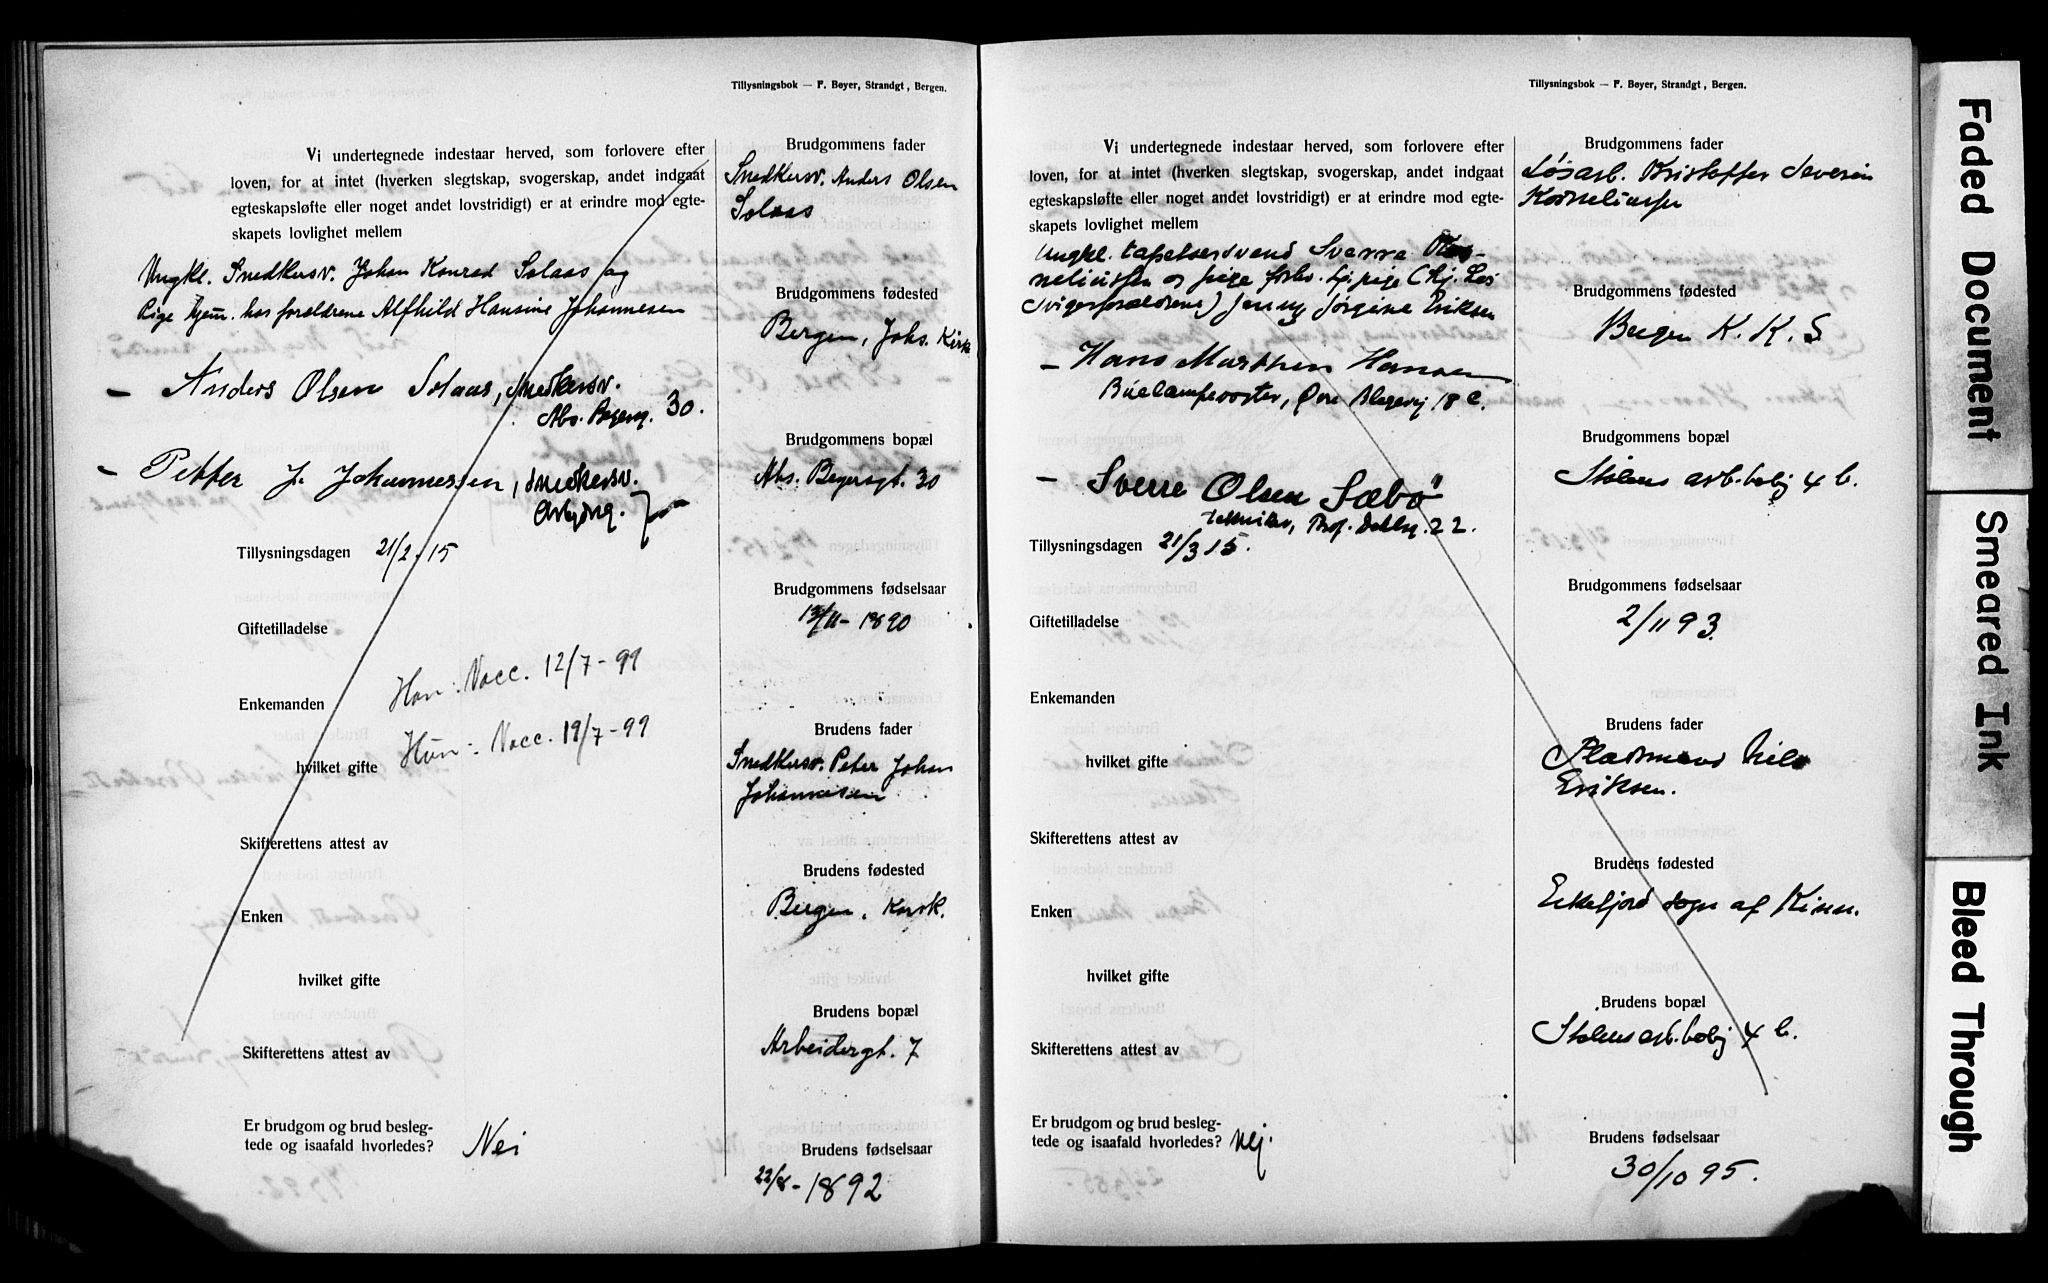 Tillysningsbok — F. Bøyer, Strandgt, Bergen.
Vi undertegnede indestaar herved, som forlovere efter
loven, for at intet (hverken slegtskap, svogerskap, andet indgaat
egteskapsløfte eller noget andet lovstridigt) er at erindre mod egte-
skapets lovlighet mellem
Ungkl. Snedkersv. Johan Konrad Solaas og
Pige hjem. hos forældrene Alfhild Hansine Johannesen
— Anders Olsen Solaas, snedkersv.
Abs. Beyersg. 30.
— Petter J. Johannessen, snedkersv.
Arbeiderg. 7
Tillysningsdagen 21/2-15
Giftetilladelse
Enkemanden
Han: Vacc. 12/7-99
hvilket gifte
Hun: Vacc. 19/7-99
Skifterettens attest av
Enken
hvilket gifte
Skifterettens attest av
Er brudgom og brud besleg-
tede og isaafald hvorledes? Nei
Brudgommens fader
Snedkersv. Anders Olsen
Solaas
Brudgommens fødested
Bergen, Johs. Kirk
Brudgommens bopæl
Abs. Beyersgt. 30
Brudgommens fødselsaar
13/11-1890
Brudens fader
Snedkersv. Peter Johan
Johannesen
Brudens fødested
Bergen, Korsk.
Brudens bopæl
Arbeidergt. 7
Brudens fødselsaar
22/8-1892
Tillysningsbok — F. Bøyer, Strandgt, Bergen.
Vi undertegnede indestaar herved, som forlovere efter
loven, for at intet (hverken slegtskap, svogerskap, andet indgaat
egteskapsløfte eller noget andet lovstridigt) er at erindre mod egte-
skapets lovlighet mellem
Ungkl. tapetsersvend Sverre Kor-
neliussen og pige forhv. tj. pige (hj. hos
Svigerforældrene) Jenny Jørgine Eriksen
— Hans Marthin Hansen
Buelampevogter, Øvre Blegevej 18 c.
— Sverre Olsen Sæbø
tekniker, Prof. 22.
Tillysningsdagen 21/3 15.
Giftetilladelse
Enkemanden
hvilket gifte
Skifterettens attest av
Enken
hvilket gifte
Skifterettens attest av
Er brudgom og brud besleg-
tede og isaafald hvorledes? Nej.
Brudgommens fader
Løsarb. Kristoffer Severin
Korneliussen
Brudgommens fødested
Bergen K. K. S
Brudgommens bopæl
Stølens arb.bolig 4 b.
Brudgommens fødselsaar
2/11 93.
Brudens fader
Pladsmand Nils
Eriksen.
Brudens fødested
Eikefjord sogn af Kinn.
Brudens bopæl
Stølens arb.bolig 4 b.
Brudens fødselsaar
30/10 95.
Faded Document
Smeared Ink
Bleed Through